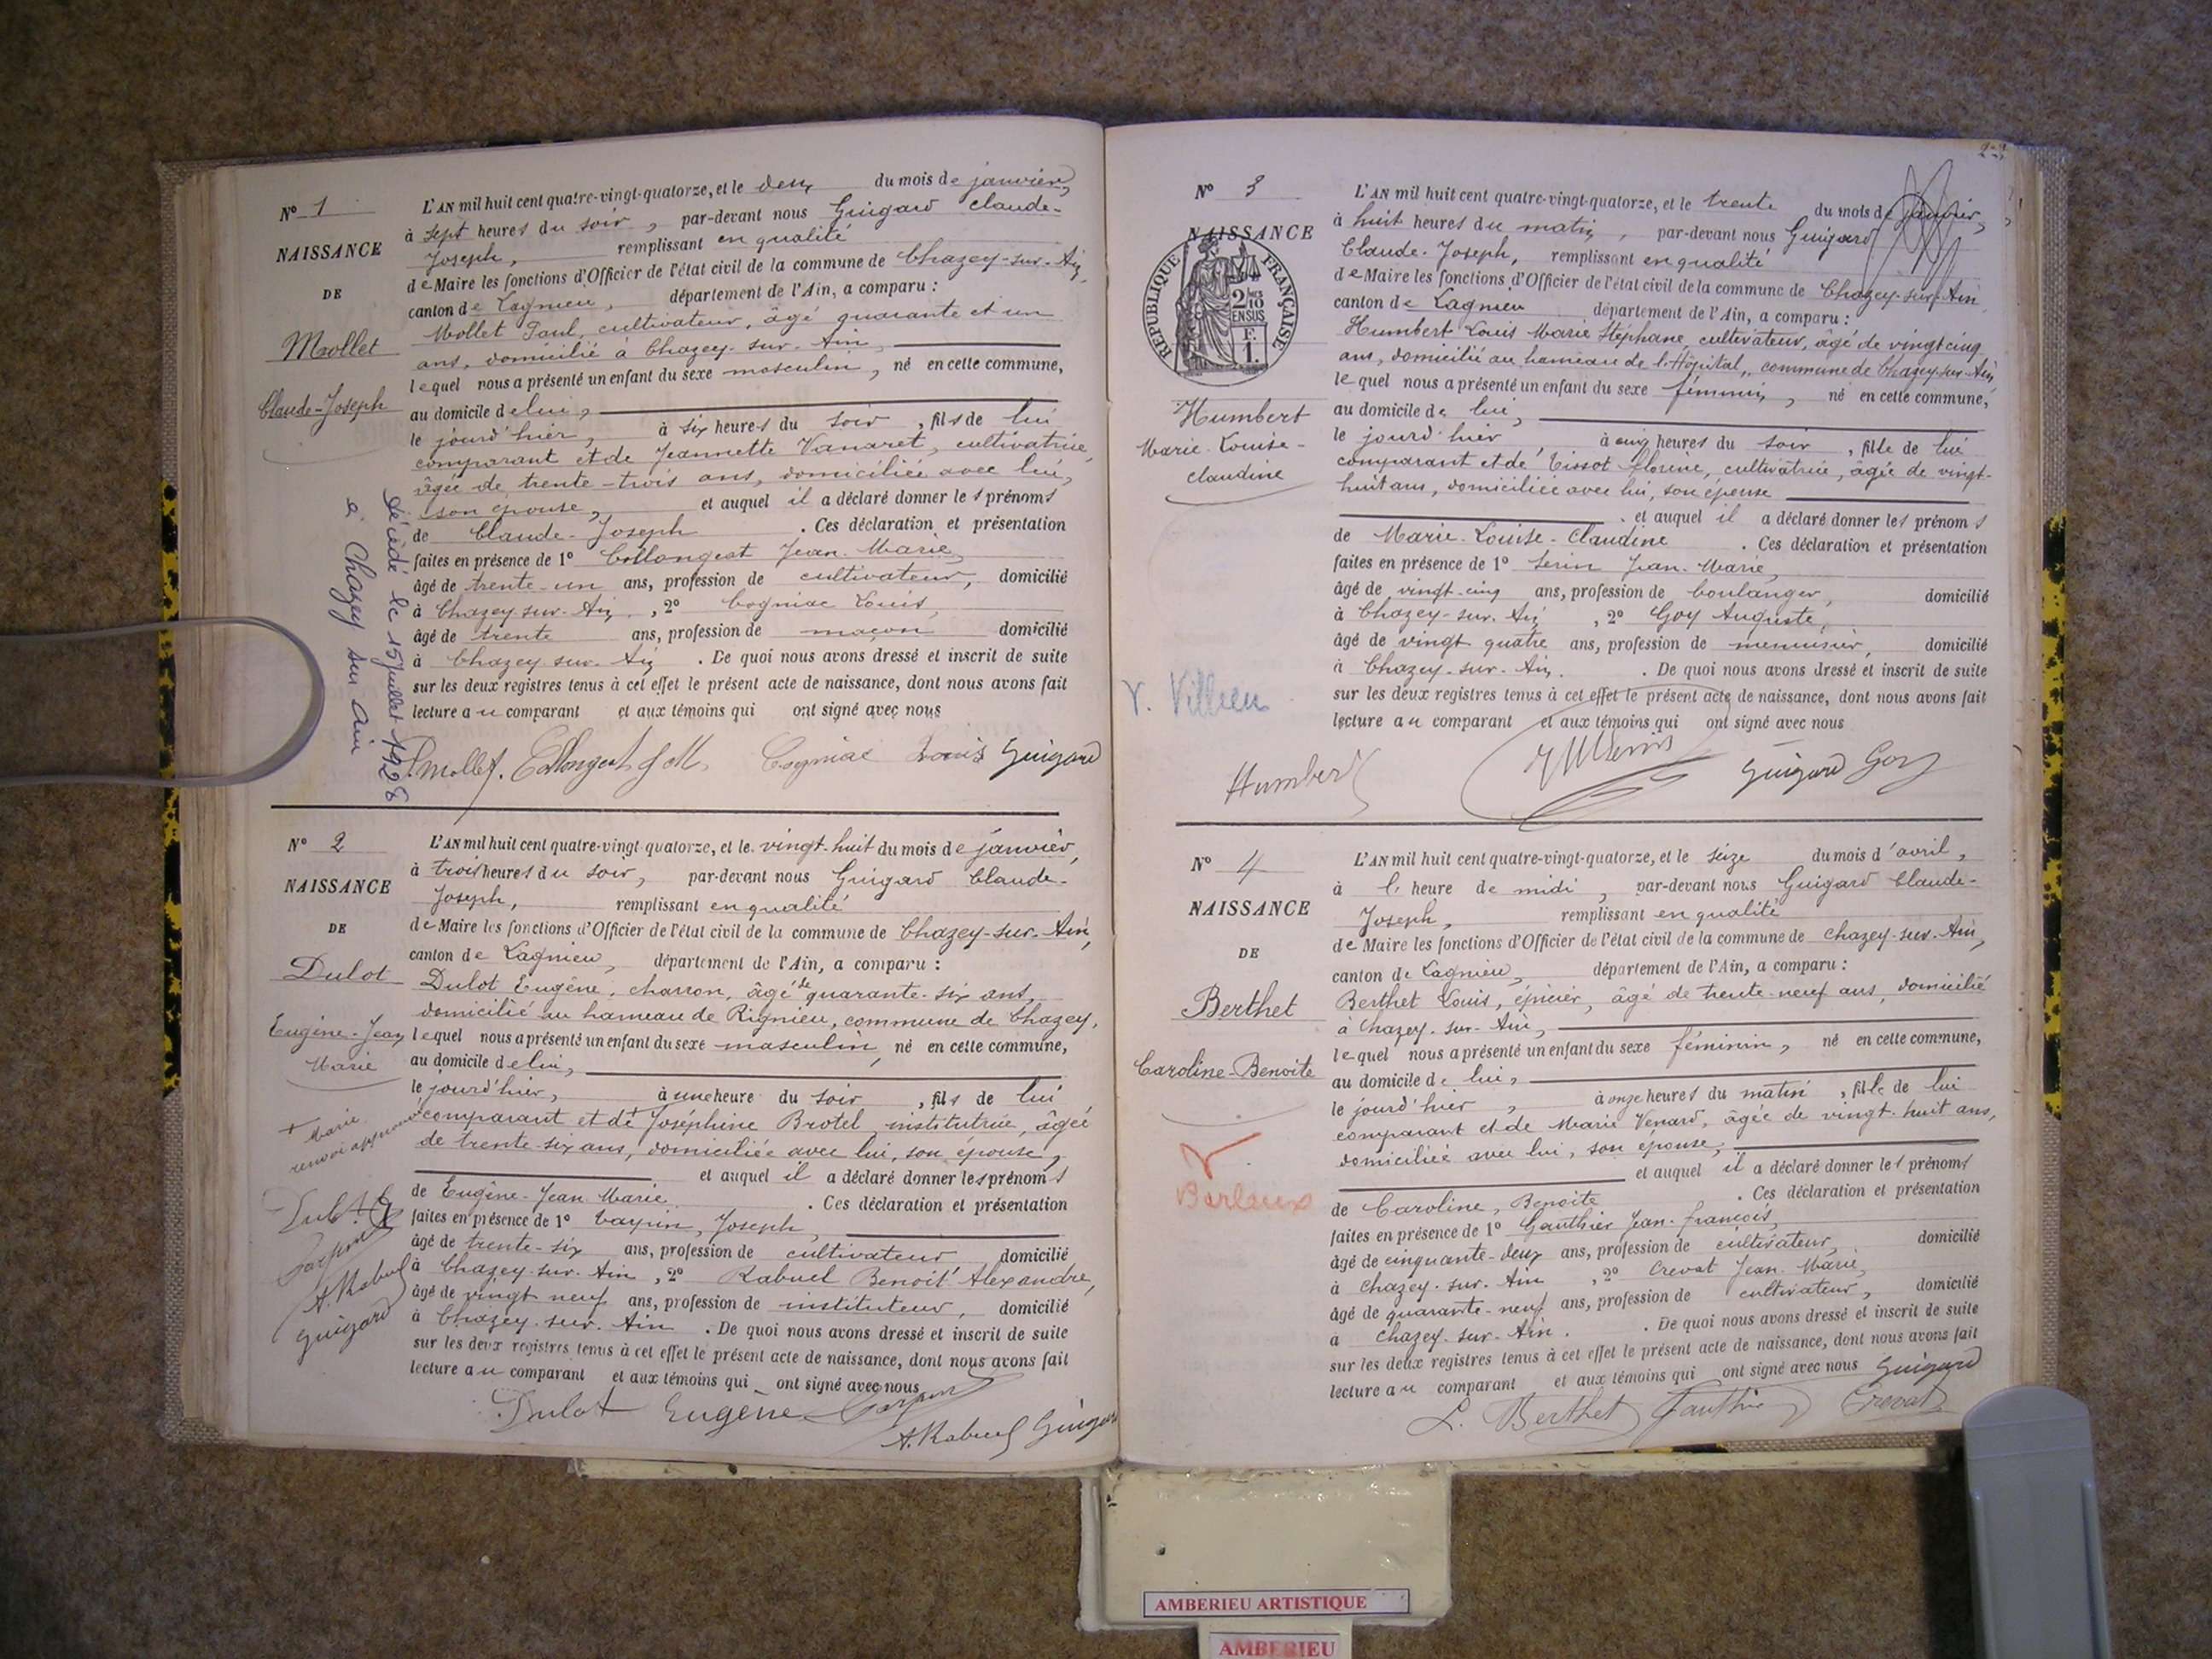 N° 1
NAISSANCE
DE
Mollet
Claude-Joseph
L'AN mil huit cent quatre-vingt-quatorze, et le deux du mois de janvier,
à sept heures du soir, par-devant nous Guigard Claude-
Joseph, remplissant en qualité
de Maire les fonctions d'Officier de l'état civil de la commune de Chazey-sur-Ain,
canton de Lagnieu, département de l'Ain, a comparu :
Mollet Paul, cultivateur, âgé quarante et un
ans, domicilié à Chazey-sur-Ain,
lequel nous a présenté un enfant du sexe masculin, né en cette commune,
au domicile de lui,
le jourd'hier, à six heures du soir, fils de lui
comparant et de Jeannette Vanaret, cultivatrice,
âgée de trente-trois ans, domiciliée avec lui,
son épouse, et auquel il a déclaré donner les prénoms
de Claude-Joseph. Ces déclaration et présentation
faites en présence de 1° Collongeat Jean-Marie,
âgé de trente-un ans, profession de cultivateur, domicilié
à Chazey-sur-Ain, 2° Cogniac Louis,
âgé de trente ans, profession de maçon domicilié
à Chazey-sur-Ain. De quoi nous avons dressé et inscrit de suite
sur les deux registres tenus à cet effet le présent acte de naissance, dont nous avons fait
lecture au comparant et aux témoins qui ont signé avec nous
P. Mollet. Collongeat J M. Cogniac Louis Guigard
Décédé le 15 juillet 1928
à Chazey sur Ain
N° 2
NAISSANCE
DE
Dulot
Eugène-Jean
Marie
L'AN mil huit cent quatre-vingt-quatorze, et le vingt-huit du mois de janvier,
à trois heures du soir, par-devant nous Guigard Claude-
Joseph, remplissant en qualité
de Maire les fonctions d'Officier de l'état civil de la commune de Chazey-sur-Ain,
canton de Lagnieu, département de l'Ain, a comparu :
Dulot Eugène, charron, âgé de quarante-six ans,
domicilié au hameau de Rignieu, commune de Chazey,
lequel nous a présenté un enfant du sexe masculin, né en cette commune,
au domicile de lui,
le jourd'hier, à une heure du soir, fils de lui
comparant et de + Joséphine Brotel, institutrice, âgée
de trente-six ans, domiciliée avec lui, son épouse,
et auquel il a déclaré donner les prénoms
de Eugène-Jean Marie. Ces déclaration et présentation
faites en présence de 1° Carpin, Joseph,
âgé de trente-six ans, profession de cultivateur domicilié
à Chazey-sur-Ain, 2° Rabuel Benoit Alexandre,
âgé de vingt neuf ans, profession de instituteur, domicilié
à Chazey-sur-Ain. De quoi nous avons dressé et inscrit de suite
sur les deux registres tenus à cet effet le présent acte de naissance, dont nous avons fait
lecture au comparant et aux témoins qui ont signé avec nous
Dulot Eugène Carpin
A. Rabuel Guigard
+ Marie
renvoi approuvé
A. Rabuel
Guigard
N° 3
NAISSANCE
RÉPUBLIQUE FRANÇAISE
2/10 EN SUS
F.
1.
Humbert
Marie-Louise-
Claudine
V. Villieu
L'AN mil huit cent quatre-vingt-quatorze, et le trente du mois de janvier,
à huit heures du matin, par-devant nous Guigard
Claude-Joseph, remplissant en qualité
de Maire les fonctions d'Officier de l'état civil de la commune de Chazey-sur-Ain
canton de Lagnieu département de l'Ain, a comparu :
Humbert Louis Marie Stéphane, cultivateur, âgé de vingt cinq
ans, domicilié au hameau de l'Hôpital, commune de Chazey-sur-Ain,
lequel nous a présenté un enfant du sexe féminin, né en cette commune,
au domicile de lui,
le jourd'hier, à cinq heures du soir, fille de lui
comparant et de Tissot Florine, cultivatrice, âgée de vingt-
huit ans, domiciliée avec lui, son épouse
et auquel il a déclaré donner les prénoms
de Marie-Louise-Claudine. Ces déclaration et présentation
faites en présence de 1° Serin Jean-Marie,
âgé de vingt-cinq ans, profession de boulanger, domicilié
à Chazey-sur-Ain, 2° Goy Auguste,
âgé de vingt quatre ans, profession de menuisier, domicilié
à Chazey-sur-Ain. De quoi nous avons dressé et inscrit de suite
sur les deux registres tenus à cet effet le présent acte de naissance, dont nous avons fait
lecture au comparant et aux témoins qui ont signé avec nous
Humbert Guigard Goy
N° 4
NAISSANCE
DE
Berthet
Caroline-Benoite
L'AN mil huit cent quatre-vingt-quatorze, et le seize du mois d'avril,
à l'heure de midi, par-devant nous Guigard Claude-
Joseph, remplissant en qualité
de Maire les fonctions d'Officier de l'état civil de la commune de Chazey-sur-Ain,
canton de Lagnieu, département de l'Ain, a comparu :
Berthet Louis, épicier, âgé de trente-neuf ans, domicilié
à Chazey-sur-Ain,
lequel nous a présenté un enfant du sexe féminin, né en cette commune,
au domicile de lui,
le jourd'hier, à onze heures du matin, fille de lui
comparant et de Marie Venard, âgée de vingt-huit ans,
domiciliée avec lui, son épouse,
et auquel il a déclaré donner les prénoms
de Caroline, Benoite. Ces déclaration et présentation
faites en présence de 1° Gauthier Jean-François,
âgé de cinquante-deux ans, profession de cultivateur, domicilié
à Chazey-sur-Ain, 2° Crevat Jean-Marie,
âgé de quarante-neuf ans, profession de cultivateur, domicilié
à Chazey-sur-Ain. De quoi nous avons dressé et inscrit de suite
sur les deux registres tenus à cet effet le présent acte de naissance, dont nous avons fait
lecture au comparant et aux témoins qui ont signé avec nous Guigard
L. Berthet Gauthier Crevat
AMBERIEU ARTISTIQUE
AMBERIEU